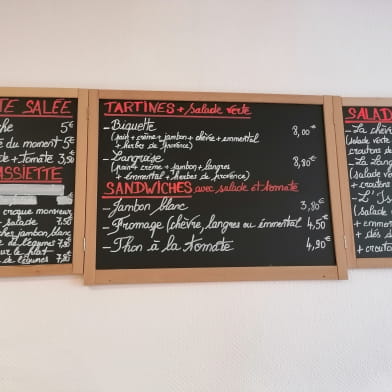 TE SALÉE
che 5€
du moment 5€
e + tomate 3,50
ASSIETTE
croque monsieur
+ salade 7,50
jambon blanc
de légumes 7,50
sur le plat
de légumes 7,50
TARTINES + salade verte
- Biquette 8,00€
(pain + crème + jambon + chèvre + emmental
+ herbes de Provence)
- Langroise 8,80€
(pain + crème + jambon + langres
+ emmental + herbes de provence)
SANDWICHES avec salade et tomate
- Jambon blanc 3,80€
- Fromage (chèvre, langres ou emmental) 4,50€
- Thon à la tomate 4,90€
SALAD
- La chèv
(salade verte
croutons de
- La Lang
(salade ve
+ crouton
- L'
(salade
+ emme
+ dés d
+ crouto